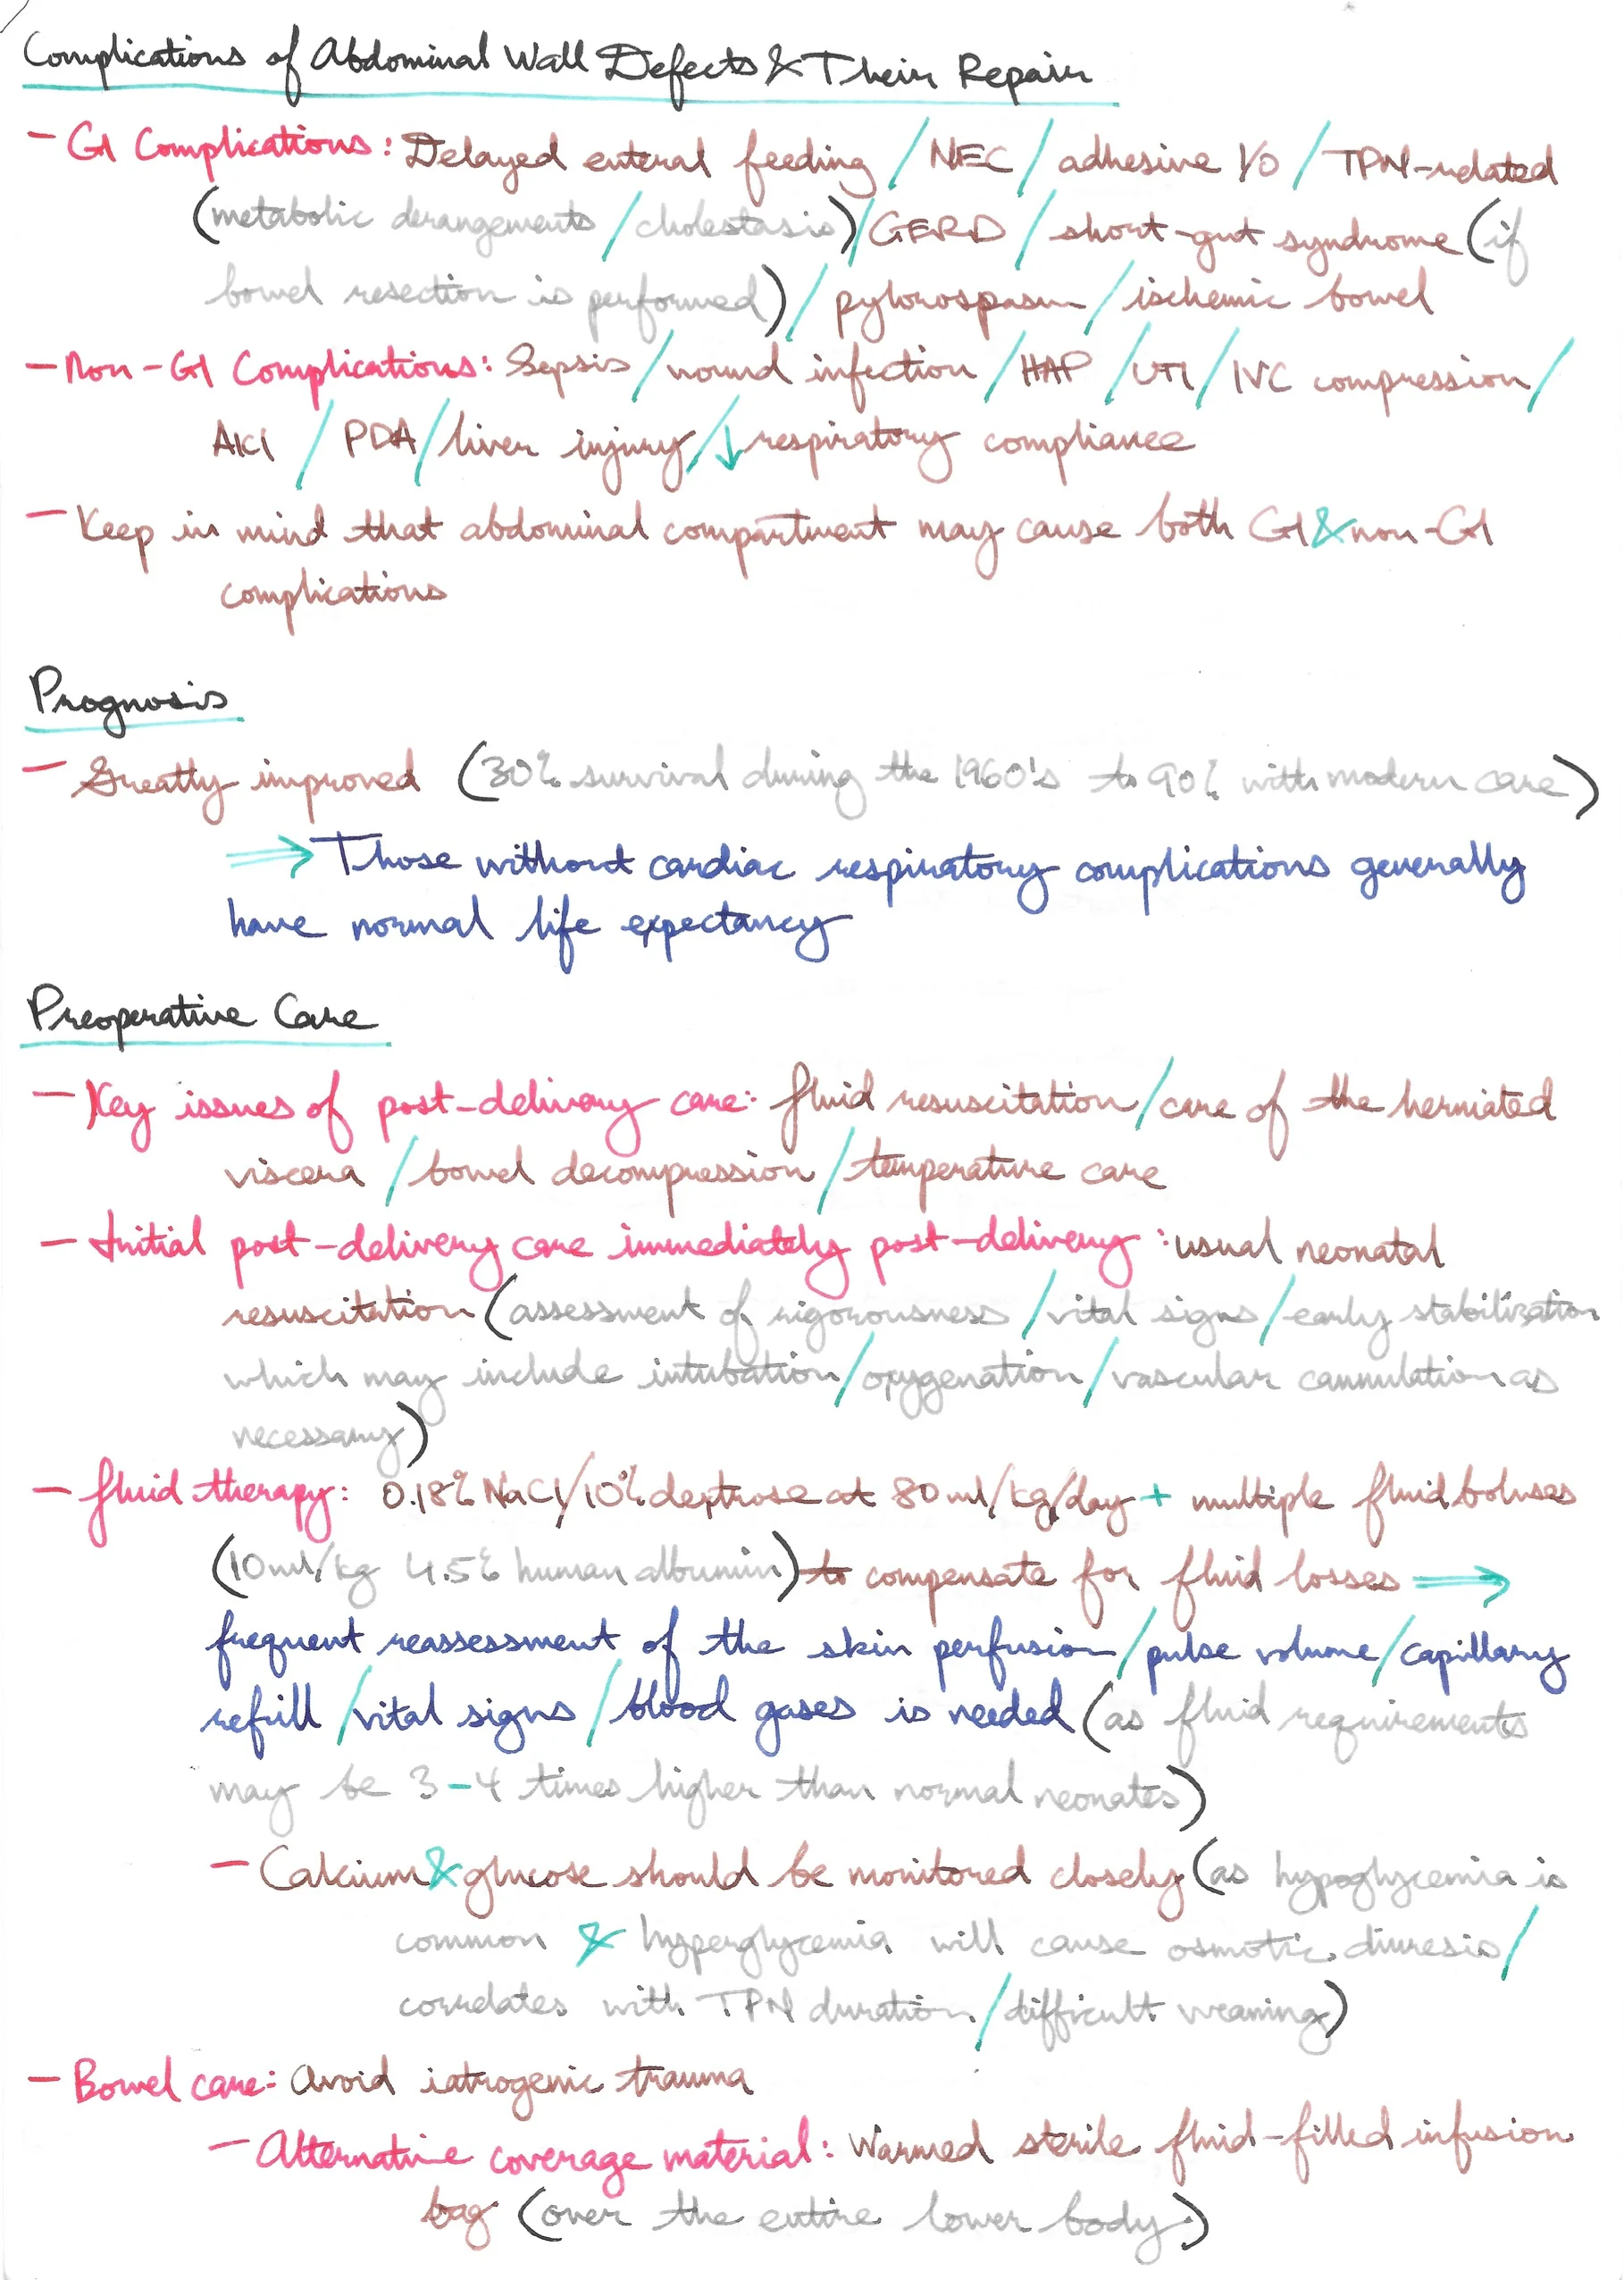 Complications of Abdominal Wall Defects & Their Repair
- GI Complications: Delayed enteral feeding / NEC / adhesive I/O / TPN-related
(metabolic derangements / cholestasis) / GERD / short-gut syndrome (if
bowel resection is performed) / pylorospasm / ischemic bowel
- Non-GI Complications: Sepsis / wound infection / HAP / UTI / IVC compression /
AKI / PDA / liver injury / ↓ respiratory compliance
- Keep in mind that abdominal compartment may cause both GI & non-GI
complications
Prognosis
- Greatly improved (30% survival during the 1960's to 90% with modern care)
⇒ Those without cardiac respiratory complications generally
have normal life expectancy
Preoperative Care
- Key issues of post-delivery care: fluid resuscitation / care of the herniated
viscera / bowel decompression / temperature care
- Initial post-delivery care immediately post-delivery: usual neonatal
resuscitation (assessment of rigorousness / vital signs / early stabilization
which may include intubation / oxygenation / vascular cannulation as
necessary)
- fluid therapy: 0.18% NaCl/10% dextrose at 80 ml/kg/day + multiple fluid boluses
(10 ml/kg 4.5% human albumin) to compensate for fluid losses ⇒
frequent reassessment of the skin perfusion / pulse volume / capillary
refill / vital signs / blood gases is needed (as fluid requirements
may be 3-4 times higher than normal neonates)
- Calcium & glucose should be monitored closely (as hypoglycemia is
common & hyperglycemia will cause osmotic diuresis /
correlates with TPN duration / difficult weaning)
- Bowel care: Avoid iatrogenic trauma
- Alternative coverage material: Warmed sterile fluid-filled infusion
bag (over the entire lower body)